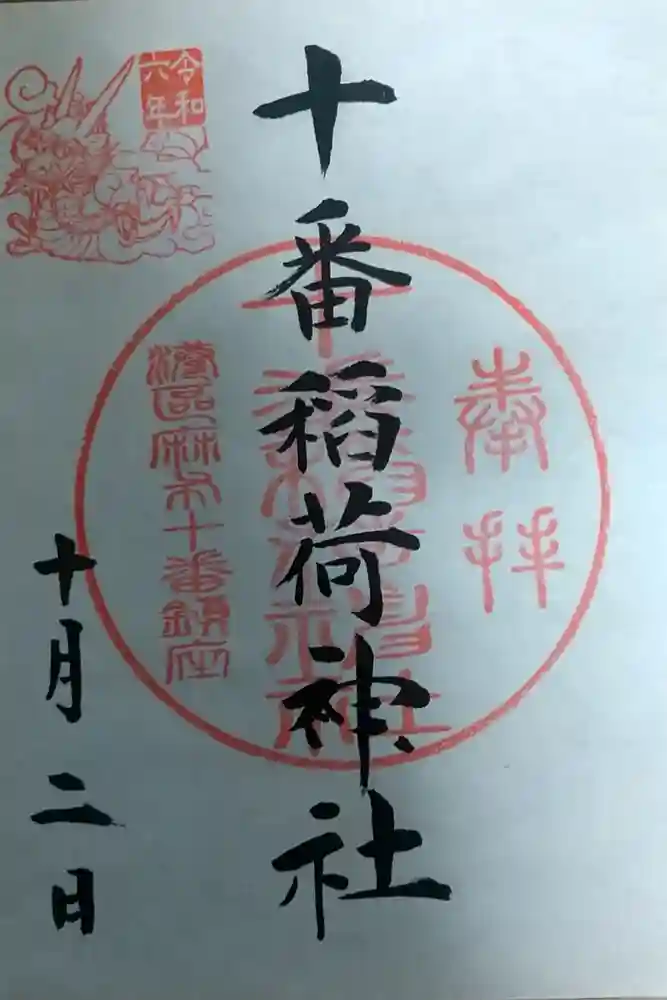 奉拝
十番稲荷神社
十番稲荷神社
港區麻布十番鎮座
令和
六年
十月二日